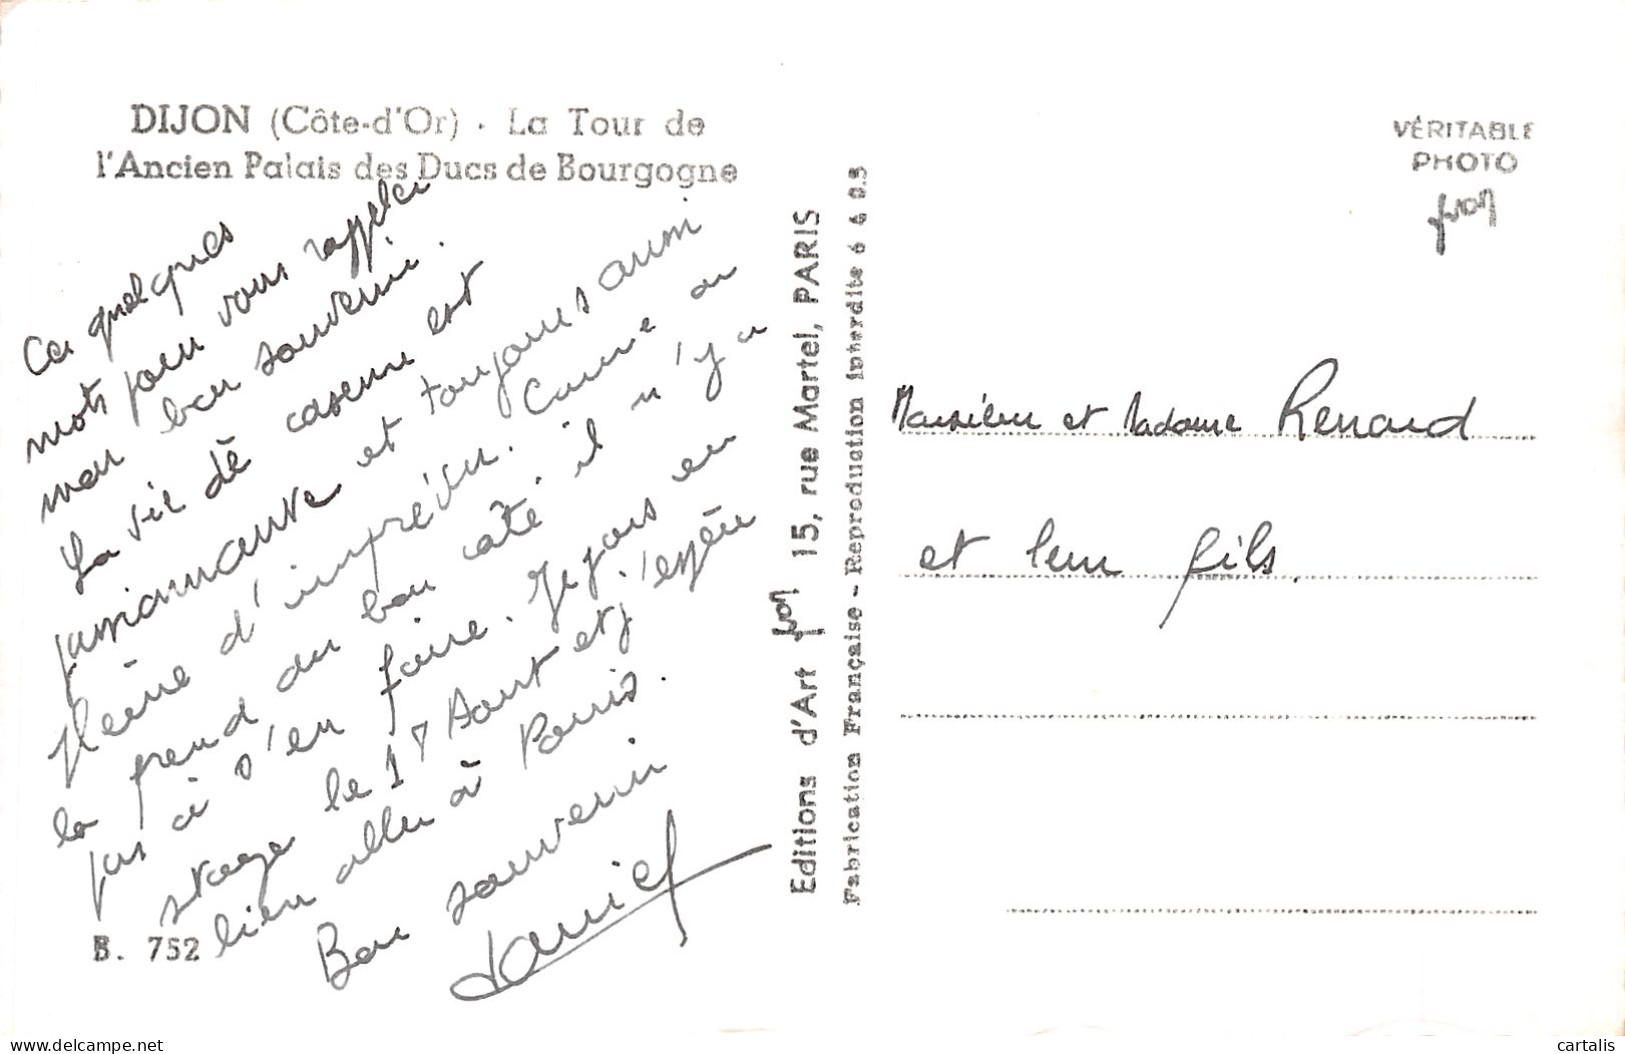 DIJON (Côte-d'Or) . La Tour de
l'Ancien Palais des Ducs de Bourgogne
Ces quelques
mots pour vous rappeler
mon bon souvenir.
La vie de caserne est
passionnante et toujours aussi
pleine d'imprévu. Comme on
la prend du bon côté il n'y a
pas à s'en faire. Je pars en
stage le 17 Aout et j'espère
bien aller à Paris.
Bon souvenir
Daniel
B. 752
Editions d'Art yvon 15, rue Martel, PARIS
Fabrication Française - Reproduction interdite 6 6 0.5
VÉRITABLE
PHOTO
yvon
Monsieur et Madame Renaud
et leur fils.
cartalis